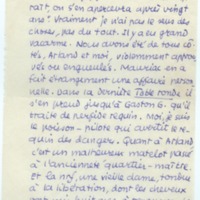 rait, on s'en apercevra après vingt
ans ! Vraiment je n'ai pas le sens des
castes, pas du tout. Il y a eu grand
vacarme. Nous avons été de tous cô-
tés, Arland et moi, violemment approu-
vés ou engueulés. Mauriac en a
fait étrangement une affaire person
nelle. Dans sa dernière Table ronde il
s'en prend jusqu'à Gaston G. qu'il
traite de perfide requin. Moi, je suis
le poisson-pilote qui avertit le re-
quin des dangers. Quant à Arland
c'est un malheureux matelot passé
à l'ancienneté quartier-maître
et la nrf, une vieille dame, tondue
à la libération, dont les cheveux
ont mis huit ans à